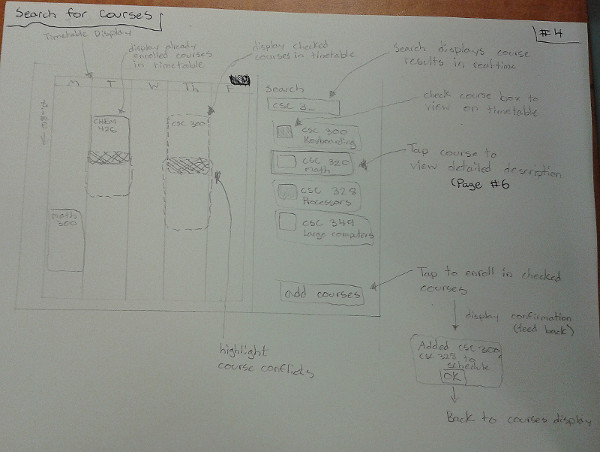 Search for Courses
#4
Timetable Display
display already
enrolled courses
in timetable
display checked
courses in timetable
Search displays course
results in real time
M T W Th F
Search
CSC 3_
check course box to
view on timetable
CHEM
CSC 300
CSC 300
Keyboarding
CSC 320
math
Tap course to
view detailed description
(Page #6
CSC 325
Processors
CSC 349
Large computers
math
300
add courses
Tap to enroll in checked
courses
display confirmation
(feed back)
highlight
course conflicts
Added CSC 300,
CSC 325 to
schedule
OK
Back to courses display